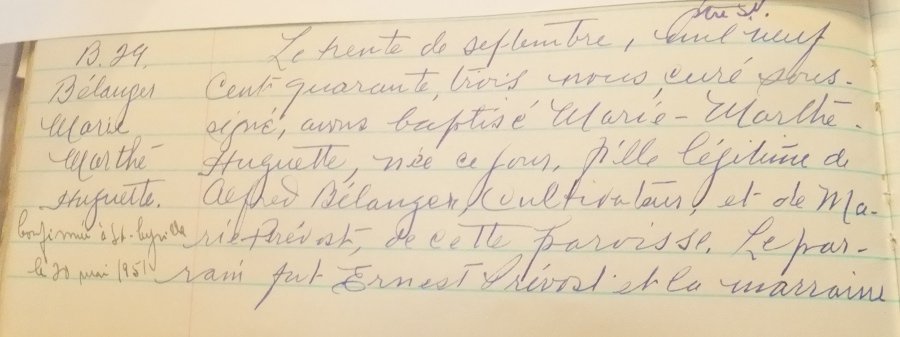 B. 29.
Bélanger
Marie
Marthe
Huguette.
confirmée à St-Cyrille
le 20 mai 1951
Le trente de septembre, mil neuf
Cent quarante, trois nous, curé sous-
signé, avons baptisé Marie-Marthe-
Huguette, née ce jour, fille légitime de
Alfred Bélanger, Cultivateur, et de Ma-
rie Prévost, de cette paroisse. Le par-
rain fut Ernest Prévost et la marraine